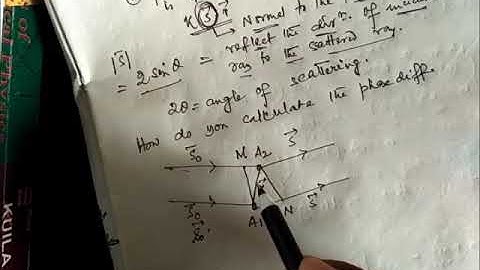 Normal to the
|S⃗| = reflect the dirn. of
= 2 sinθ ray to the scattered ray.
2θ = angle of scattering.
How do you calculate the phase diff.
S⃗₀ M A₂ S⃗
S⃗₀ A₁ N S⃗
S⃗₀
KUILA